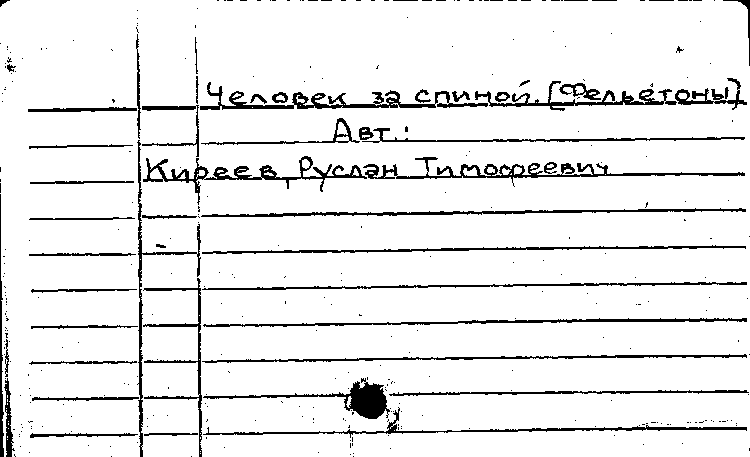 Человек за спиной. [Фельетоны]
Авт.:
Киреев, Руслан Тимофеевич